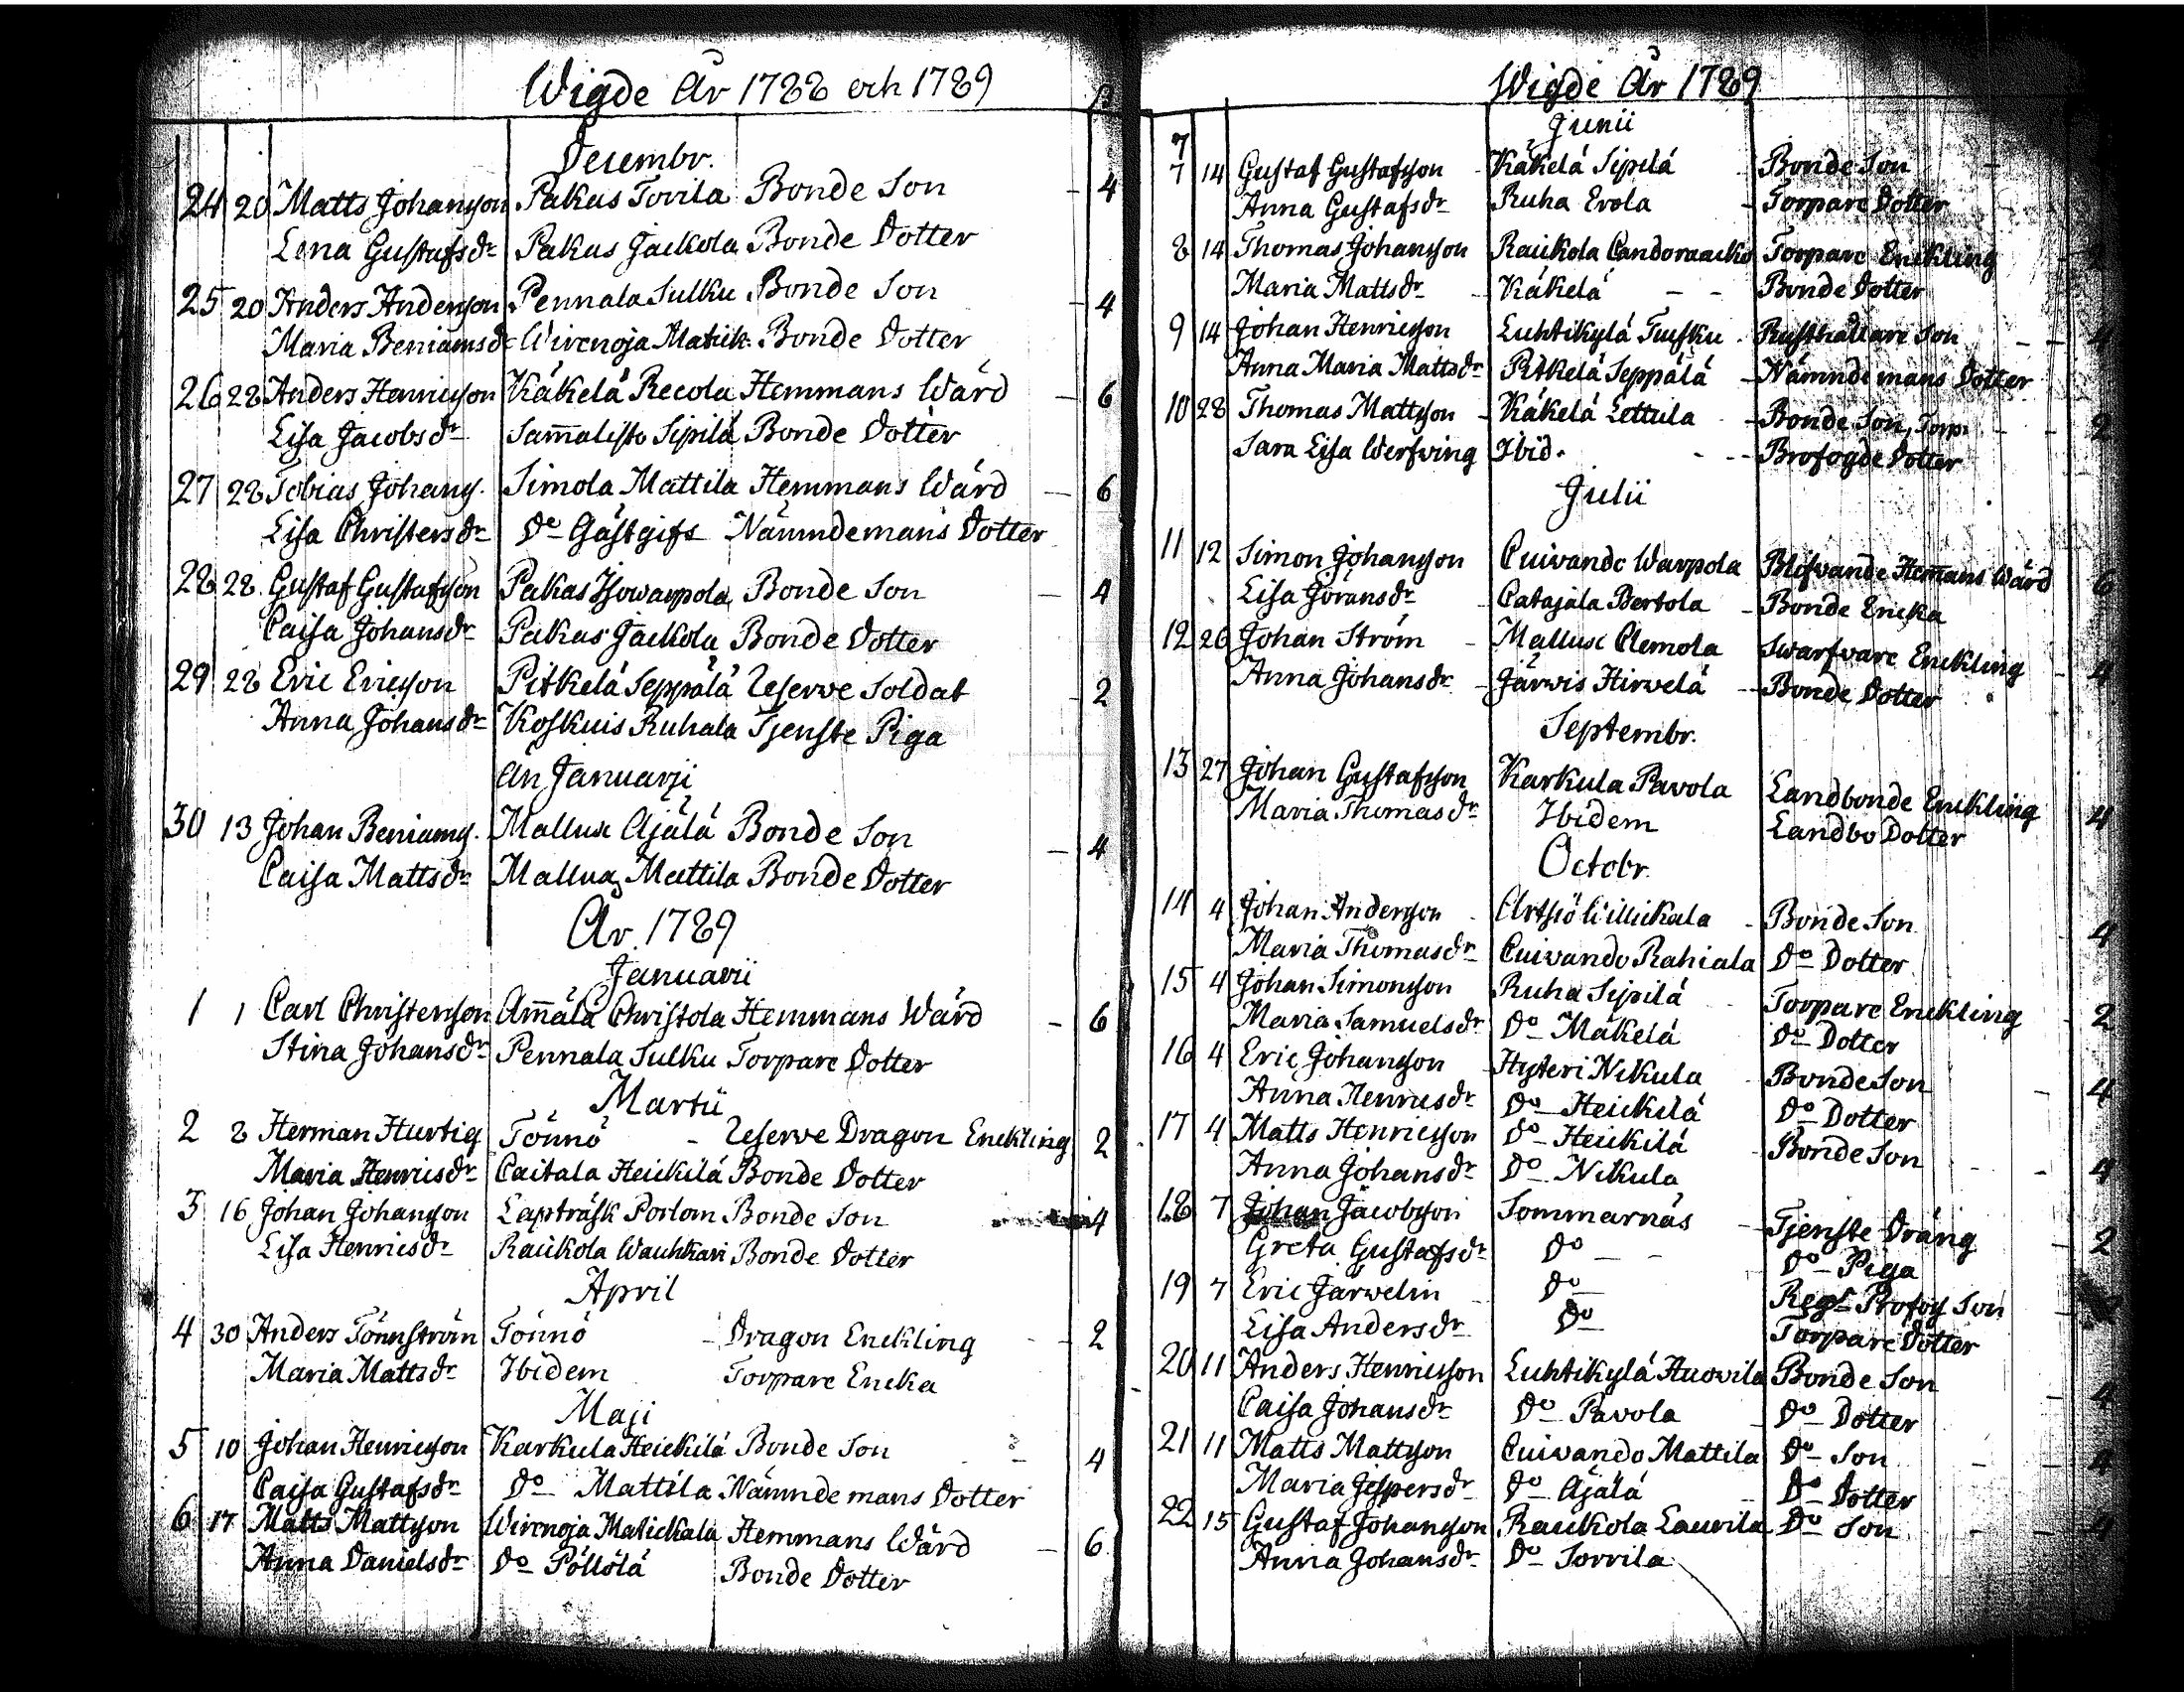 Wigde År 1788 och 1789
Decembr.
24 20 Matts Johansson Pakas Tovila Bonde Son 4
Lena Gustafsdr Pakas Jackola Bonde Dotter
25 20 Anders Andersson Pennala Sulku Bonde Son 4
Maria Beniamsdr Wirenoja Matick. Bonde Dotter
26 28 Anders Henricsson Käkelä Recola Hemmans Wärd 6
Lisa Jacobsdr Sam̄alisto Sipilä Bonde Dotter
27 28 Tobias Johans. Simola Mattila Hemmans Wärd 6
Lisa Christersdr Do Gästgifs Nämndemans Dotter
28 28 Gustaf Gustafsson Pakas Isowarpola Bonde Son 4
Caisa Johansdr Pakas Jackola Bonde Dotter
29 28 Eric Ericsson Pitkelä Seppälä Reserve Soldat 2
Anna Johansdr Koskuis Ruhala Tjenste Piga
An Januarji
30 13 Johan Beniams. Mallux Ajälä Bonde Son 4
Caisa Mattsdr Mallux Mattila Bonde Dotter
År 1789
Januarii
1 1 Carl Christersson Am̄älä Christola Hemmans Wärd 6
Stina Johansdr Pennala Sulku Torpare Dotter
Martii
2 8 Herman Hurtig Tönnö Reserve Dragon Enckling 2
Maria Henricsdr Caitala Heickilä Bonde Dotter
3 16 Johan Johansson Lapträsk Porlom Bonde Son 4
Lisa Henricsdr Räickola Wauhkari Bonde Dotter
April
4 30 Anders Tönnström Tönnö Dragon Enckling 2
Maria Mattsdr Ibidem Torpare Encka
Maji
5 10 Johan Henricsson Karkula Heickilä Bonde Son 4
Caisa Gustafsdr Do Mattila Nämndemans Dotter
6 17 Matts Mattsson Wirenoja Matickala Hemmans Wärd 6
Anna Danielsdr Do Pöllölä Bonde Dotter
Wigde År 1789
Junii
7
7 14 Gustaf Gustafsson Käkelä Sipilä Bonde Son
Anna Gustafsdr Ruha Erola Torpare Dotter
8 14 Thomas Johansson Raickola Torpare Enckling 2
Maria Mattsdr Käkelä Bonde Dotter
9 14 Johan Henricsson Luhtikylä Tusku Rusthållare Son 4
Anna Maria Mattsdr Pitkelä Seppälä Nämndemans Dotter
10 28 Thomas Mattsson Käkelä Lettula Bonde Son, Torp. 2
Sara Lisa Werfwing Ibid. Brofogde Dotter
Julii
11 12 Simon Johansson Cuivando Warpola Blifvande Hem̄ans Wärd 6
Lisa Göransdr Catajala Bertola Bonde Encka
12 26 Johan Ström Mallux Clemola Swarfvare Enckling 4
Anna Johansdr Järvis Hirvelä Bonde Dotter
Septembr.
13 27 Johan Gustafsson Karkula Pavola Landbonde Enckling 4
Maria Thomasdr Ibidem Landbo Dotter
Octobr.
14 4 Johan Andersson Artsiö Willickala Bonde Son 4
Maria Thomasdr Cuivando Rahiala Do Dotter
15 4 Johan Simonsson Ruha Sipilä Torpare Enckling 2
Maria Samuelsdr Do Mäkelä Do Dotter
16 4 Eric Johansson Hyteri Nikula Bonde Son 4
Anna Henricsdr Do Heickilä Do Dotter
17 4 Matts Henricsson Do Heickilä Bonde Son 4
Anna Johansdr Do Nikula
18 7 Johan Jacobsson Sommarnäs Tjenste Dräng 2
Greta Gustafsdr Do Do Piga
19 7 Eric Järwelin Do Regts Profos Son
Lisa Andersdr Do Torpare Dotter
20 11 Anders Henricsson Luhtikylä Huovila Bonde Son 4
Caisa Johansdr Do Pavola Do Dotter
21 11 Matts Mattsson Cuivando Mattila Do Son 4
Maria Jespersdr Do Ajälä Do Dotter
22 15 Gustaf Johansson Raukola Laurila Do Son 4
Anna Johansdr Do Sorrila